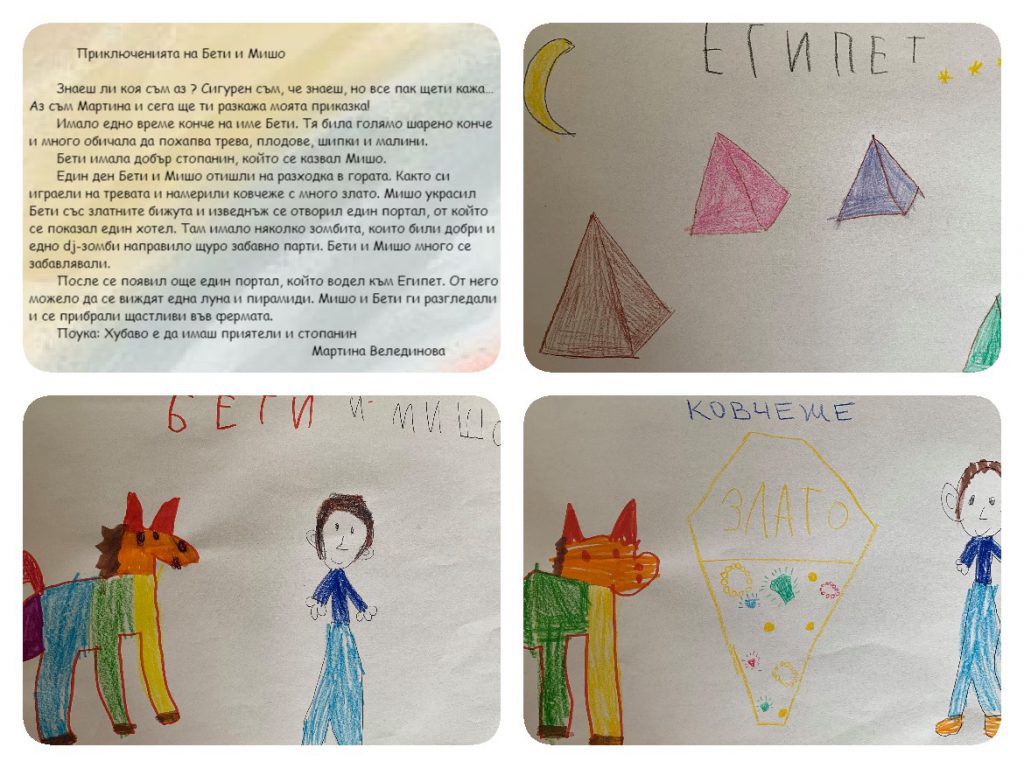 Приключенията на Бети и Мишо
Знаеш ли коя съм аз ? Сигурен съм, че знаеш, но все пак щети кажа...
Аз съм Мартина и сега ще ти разкажа моята приказка!
Имало едно време конче на име Бети. Тя била голямо шарено конче
и много обичала да похапва трева, плодове, шипки и малини.
Бети имала добър стопанин, който се казвал Мишо.
Един ден Бети и Мишо отишли на разходка в гората. Както си
играели на тревата и намерили ковчеже с много злато. Мишо украсил
Бети със златните бижута и изведнъж се отворил един портал, от който
се показал един хотел. Там имало няколко зомбита, които били добри и
едно dj-зомби направило щуро забавно парти. Бети и Мишо много се
забавлявали.
После се появил още един портал, който водел към Египет. От него
можело да се виждат една луна и пирамиди. Мишо и Бети ги разгледали
и се прибрали щастливи във фермата.
Поука: Хубаво е да имаш приятели и стопанин
Мартина Велединова
ЕГИПЕТ
БЕТИ И МИШО
КОВЧЕЖЕ
ЗЛАТО